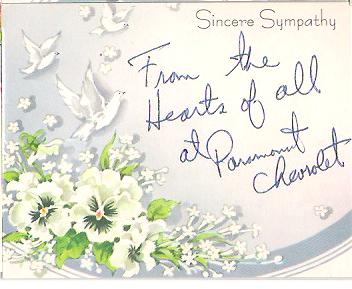 Sincere Sympathy
From the
Hearts of all
at Paramount
Chevrolet